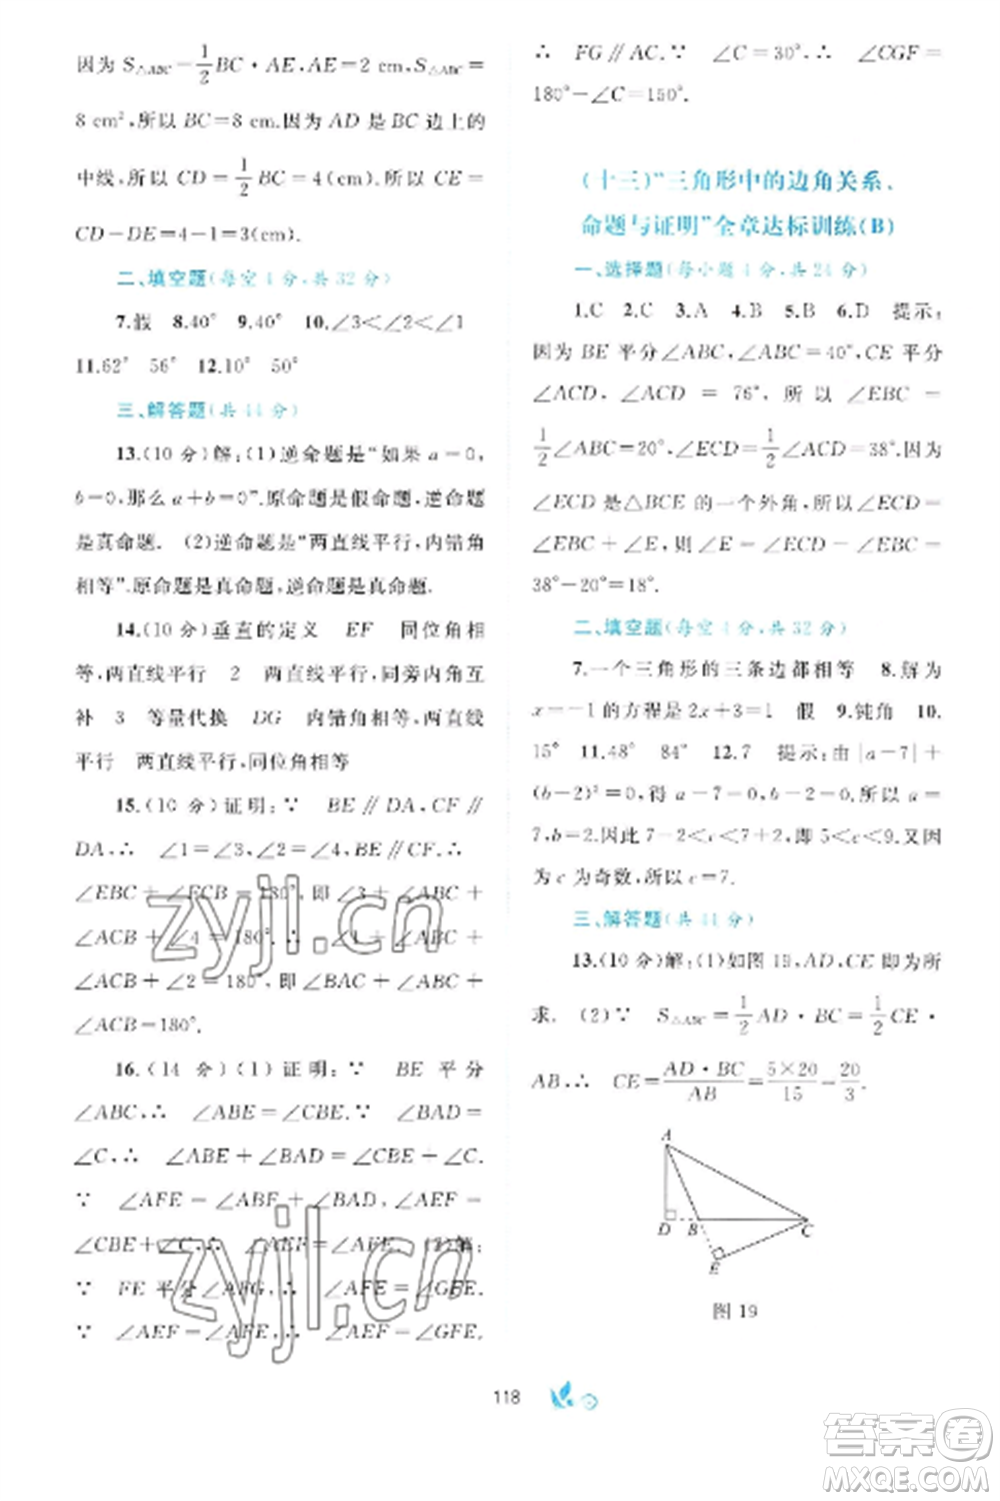 因为 S△ABC=1/2 BC·AE,AE=2 cm,S△ABC=
8 cm²,所以 BC=8 cm.因为 AD 是 BC 边上的
中线,所以 CD=1/2 BC=4(cm).所以 CE=
CD-DE=4-1=3(cm).
二、填空题(每空 4 分,共 32 分)
7.假 8.40° 9.40° 10.∠3<∠2<∠1
11.62° 56° 12.10° 50°
三、解答题(共 44 分)
13.(10 分)解:(1)逆命题是“如果 a=0,
b=0,那么 a+b=0”.原命题是假命题,逆命题
是真命题. (2)逆命题是“两直线平行,内错角
相等”.原命题是真命题,逆命题是真命题.
14.(10 分)垂直的定义 EF 同位角相
等,两直线平行 2 两直线平行,同旁内角互
补 3 等量代换 DG 内错角相等,两直线
平行 两直线平行,同位角相等
15.(10 分)证明:∵ BE∥DA,CF∥
DA,∴ ∠1=∠3,∠2=∠4,BE∥CF.∴
∠EBC+∠ECB=180°,即 ∠3+∠ABC+
∠ACB+∠4=180°,即 ∠BAC+∠ABC+
∠ACB=180°.
16.(14 分)(1)证明:∵ BE 平分
∠ABC,∴ ∠ABE=∠CBE.∵ ∠BAD=
∠C,∴ ∠ABE+∠BAD=∠CBE+∠C.
∵ ∠AFE=∠ABE+∠BAD,∠AEF=∠CBE
+∠C,∴ ∠AEF=∠AFE. (2)解:
∵ FE 平分∠AFG,∴ ∠AFE=∠GFE.
∵ ∠AEF=∠AFE,∴ ∠AEF=∠GFE.
∴ FG∥AC.∵ ∠C=30°,∴ ∠CGF=
180°-∠C=150°.
(十三)“三角形中的边角关系、
命题与证明”全章达标训练(B)
一、选择题(每小题 4 分,共 24 分)
1.C 2.C 3.A 4.B 5.B 6.D 提示:
因为 BE 平分∠ABC,∠ABC=40°,CE 平分
∠ACD,∠ACD=76°,所以 ∠EBC=
1/2∠ABC=20°,∠ECD=1/2∠ACD=38°.因为
∠ECD 是△BCE 的一个外角,所以∠ECD=
∠EBC+∠E,则 ∠E=∠ECD-∠EBC=
38°-20°=18°.
二、填空题(每空 4 分,共 32 分)
7.一个三角形的三条边都相等 8.解为
x=-1 的方程是 2x+3=1 假 9.钝角 10.
15° 11.48° 84° 12.7 提示:由|a-7|+
(b-2)²=0,得 a-7=0,b-2=0.所以 a=
7,b=2.因此 7-2<c<7+2,即 5<c<9.又因
为 c 为奇数,所以 c=7.
三、解答题(共 44 分)
13.(10 分)解:(1)如图 19,AD,CE 即为所
求. (2)∵ S△ABC=1/2 AD·BC=1/2 CE·
AB,∴ CE=AD·BC/AB=5×20/15=20/3.
A
D B C
E
图 19
118
zyjl.cn
zyjl.cn
答案圈
MXQE.COM